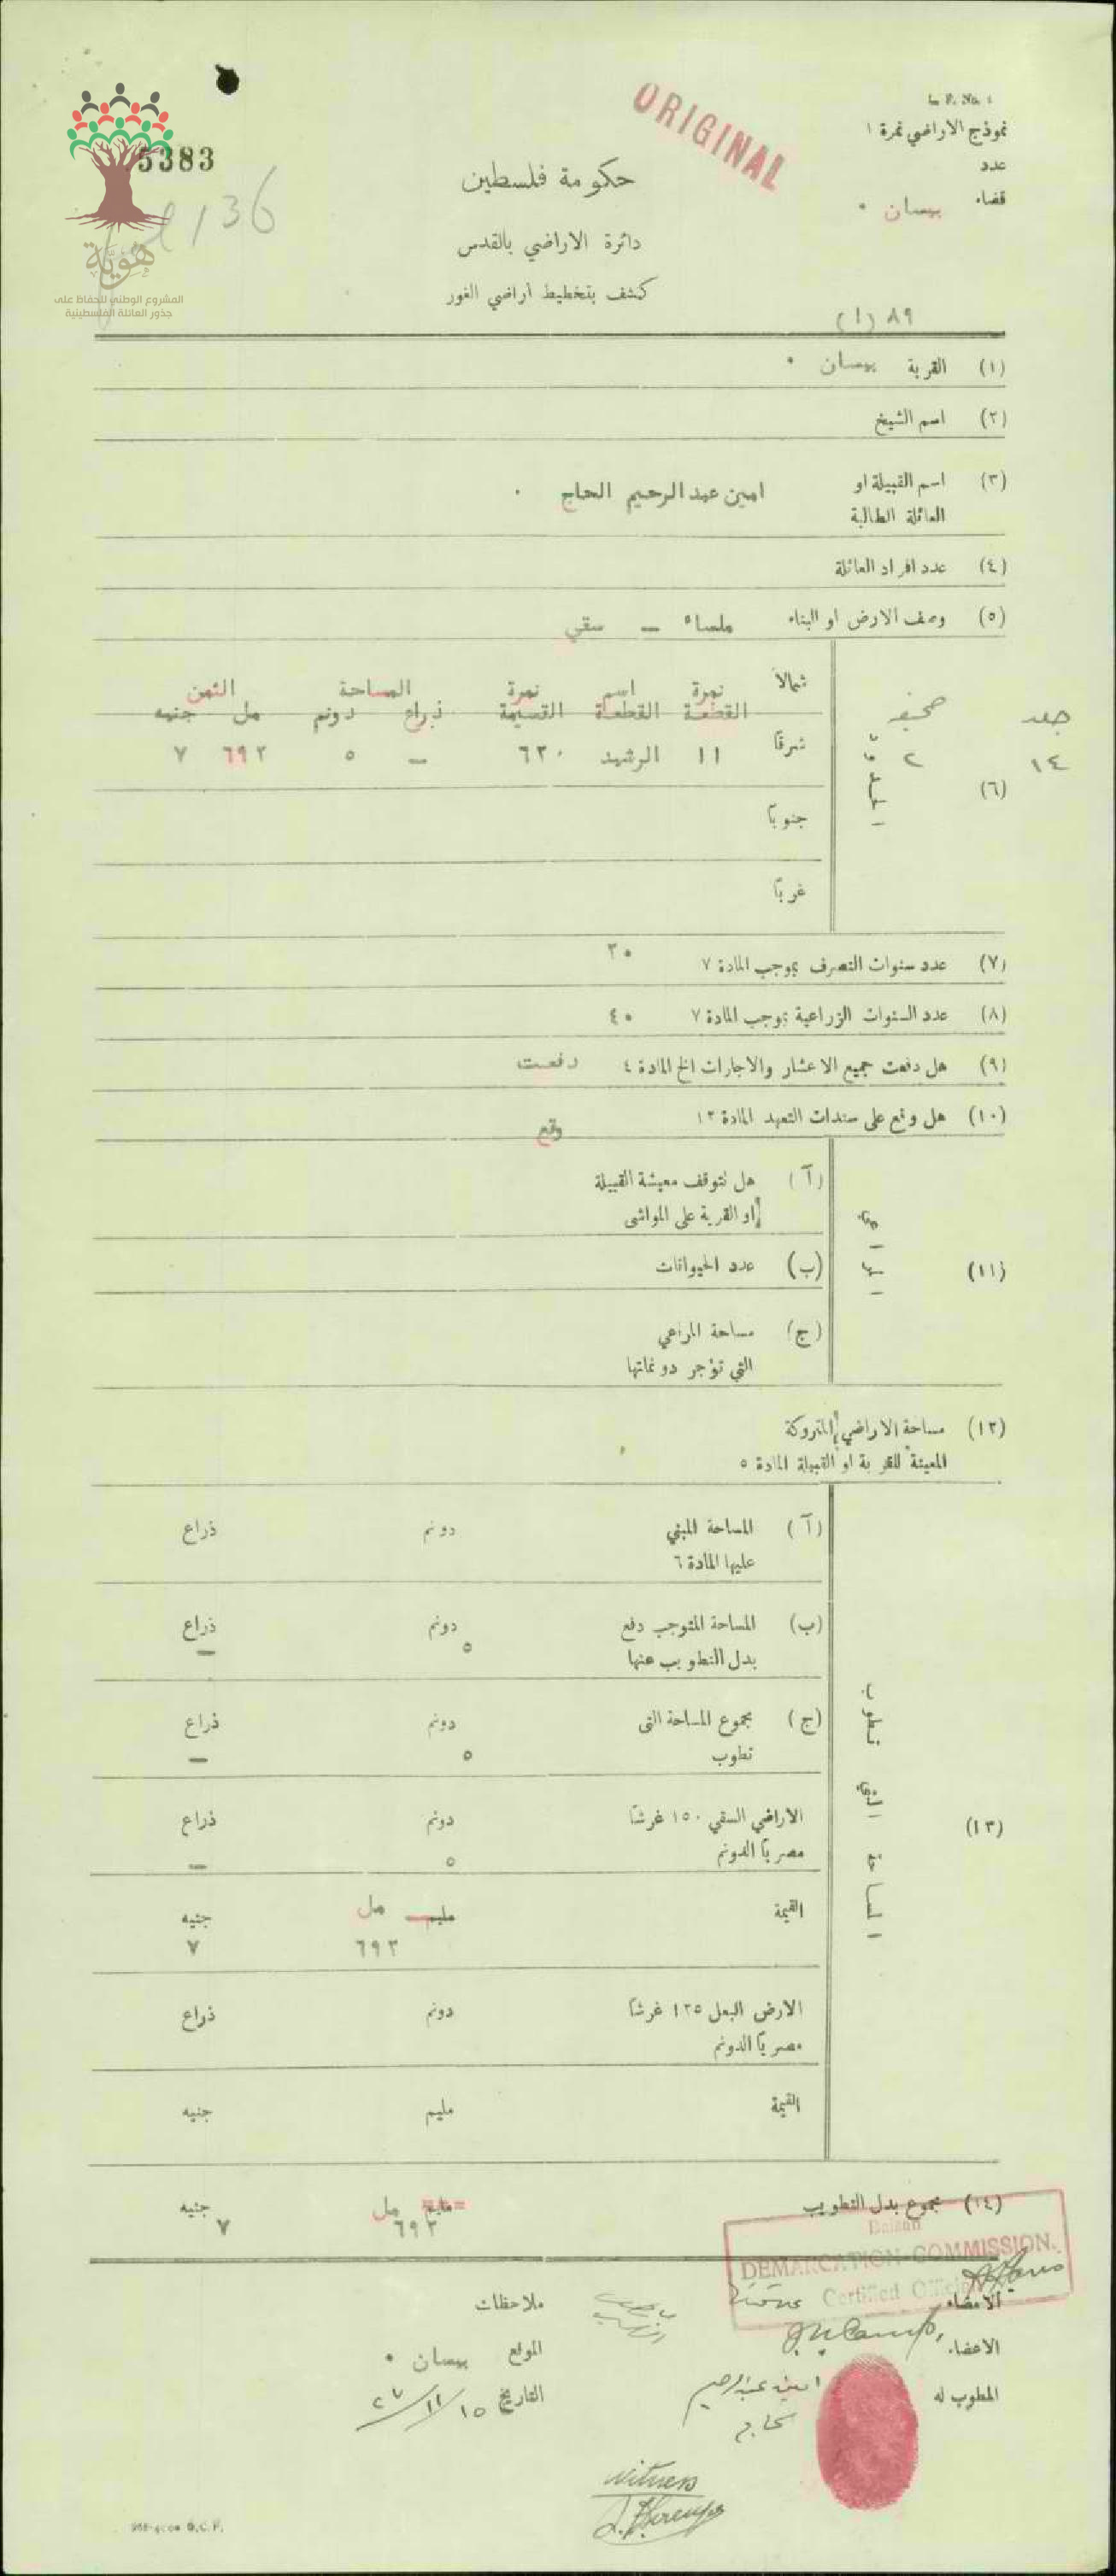 ORIGINAL
L. F. No. 1
نموذج الاراضي نمرة ١
عدد
قضاء بيسان .
5383
2136
حكومة فلسطين
دائرة الاراضي بالقدس
كشف بتخطيط اراضي الغور
هوية
المشروع الوطني للحفاظ على
جذور العائلة الفلسطينية
٨٩ (١)
(١) القرية بيسان .
(٢) اسم الشيخ
(٣) اسم القبيلة او
العائلة الطالبة
امين عبد الرحيم الحاج .
(٤) عدد افراد العائلة
(٥) وصف الارض او البناء ملساء — سقي
جلد صحيفه
١٤ ٢
(٦) الحدود
شمالاً
نمرة اسم نمرة المساحة الثمن
القطعة القطعة القسيمة ذراع دونم مل جنيه
شرقاً
١١ الرشيد ٦٢٠ — ٥ ٦٩٢ ٧
جنوباً
غرباً
(٧) عدد سنوات التصرف بموجب المادة ٧ ٢٠
(٨) عدد السنوات الزراعية بموجب المادة ٧ ٤٠
(٩) هل دفعت جميع الاعشار والاجارات الخ المادة ٤ دفعت
(١٠) هل وقع على سندات التعهد المادة ١٢ وقع
(١١) المراعي
(آ) هل تتوقف معيشة القبيلة
او القرية على المواشي
(ب) عدد الحيوانات
(ج) مساحة المراعي
التي تؤجر دونماتها
(١٢) مساحة الاراضي المتروكة
المعينة للقرية او القبيلة المادة ٥
(١٣) المساحة التي تطوب
(آ) المساحة المبني دونم ذراع
عليها المادة ٦
(ب) المساحة المتوجب دفع دونم ذراع
بدل التطويب عنها ٥ —
(ج) مجموع المساحة التي دونم ذراع
تطوب ٥ —
الاراضي السقي ١٥٠ غرشاً دونم ذراع
مصرياً الدونم ٥ —
القيمة مليم مل جنيه
٦٩٢ ٧
الارض البعل ١٢٥ غرشاً دونم ذراع
مصرياً الدونم
القيمة مليم جنيه
(١٤) مجموع بدل التطويب مليم مل جنيه
٦٩٢ ٧
Beisan
DEMARCATION COMMISSION.
Certified Official
الامضاء
ملاحظات
الاعضاء
الموقع بيسان .
المطوب له امين عبدالرحيم
الحاج
التاريخ ١٥/١١/٢٧
witness